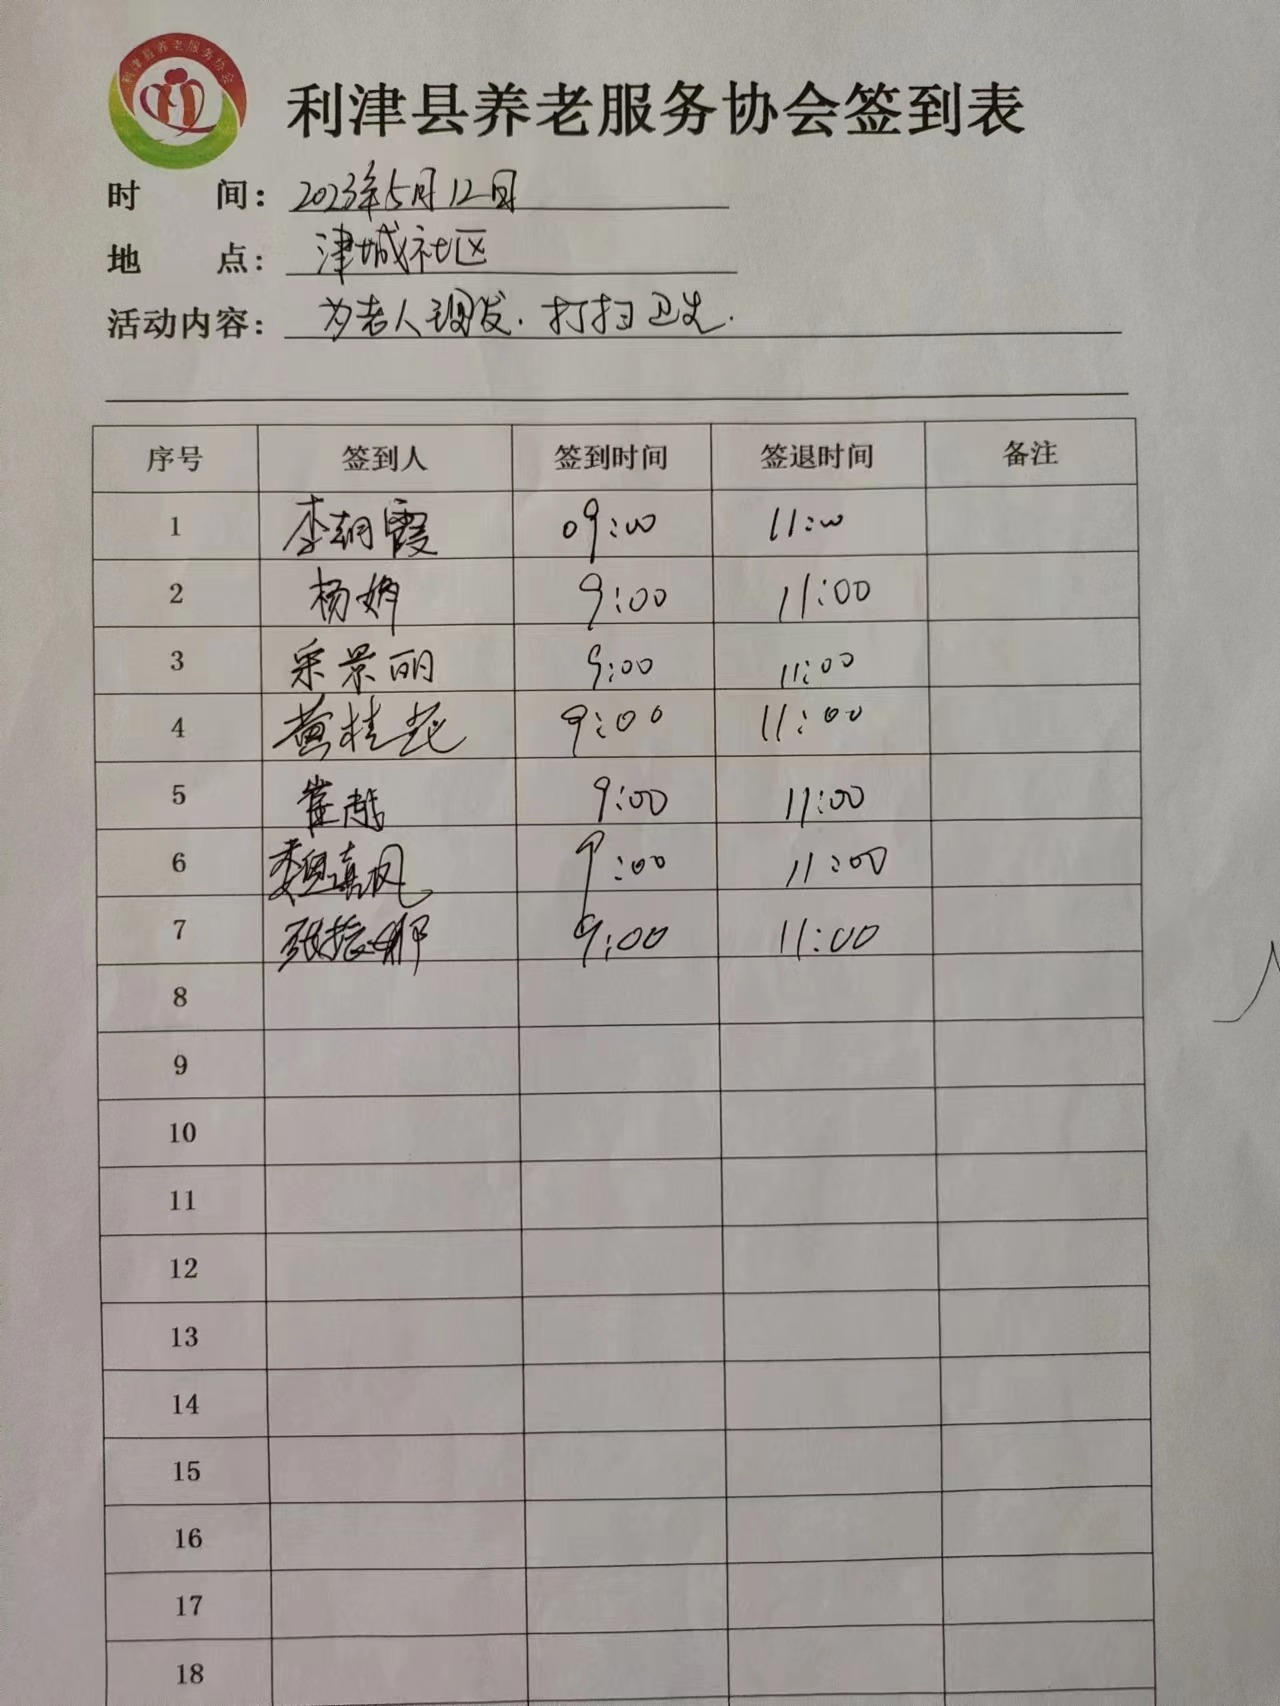 利津县养老服务协会
利津县养老服务协会签到表
时 间: 2023年5月12日
地 点: 津城社区
活动内容: 为老人理发.打扫卫生.
序号 签到人 签到时间 签退时间 备注
1 李朝霞 09:00 11:00
2 杨娇 9:00 11:00
3 采景丽 9:00 11:00
4 黄桂花 9:00 11:00
5 崔越 9:00 11:00
6 9:00 11:00
7 9:00 11:00
8
9
10
11
12
13
14
15
16
17
18